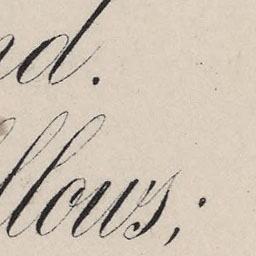 nd.
llows;